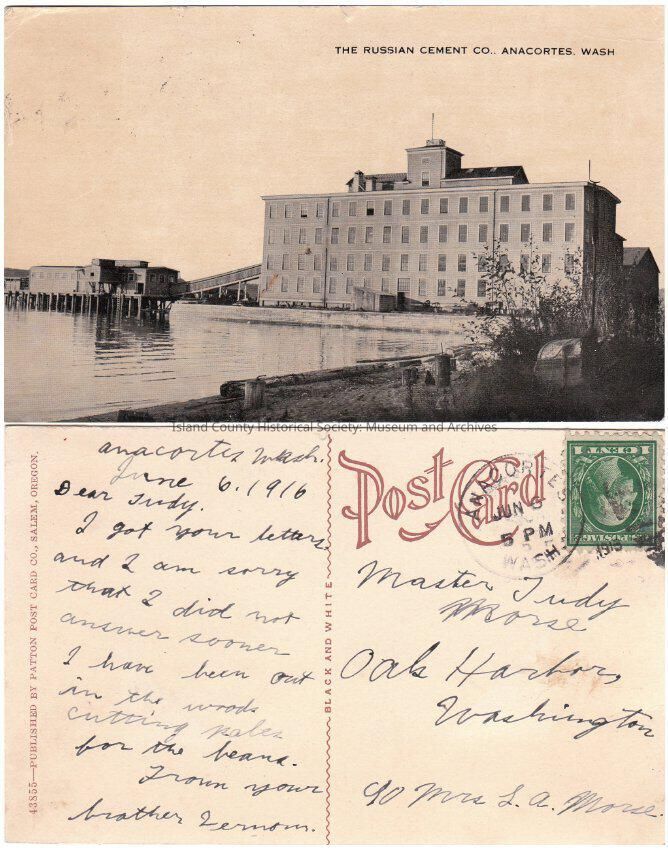 THE RUSSIAN CEMENT CO., ANACORTES, WASH
Island County Historical Society: Museum and Archives
43855—PUBLISHED BY PATTON POST CARD CO., SALEM, OREGON.
Anacortes Wash.
June 6. 1916
Dear Judy.
I got your letters.
and I am sorry
that I did not
answer sooner
I have been out
in the woods
cutting poles
for the beans.
From your
brother Vernon.
BLACK AND WHITE
Post Card
ANACORTES
JUN 6
5 PM
WASH
Master Judy
Morse
Oak Harbor,
Washington
C/O Mrs L. A. Morse.